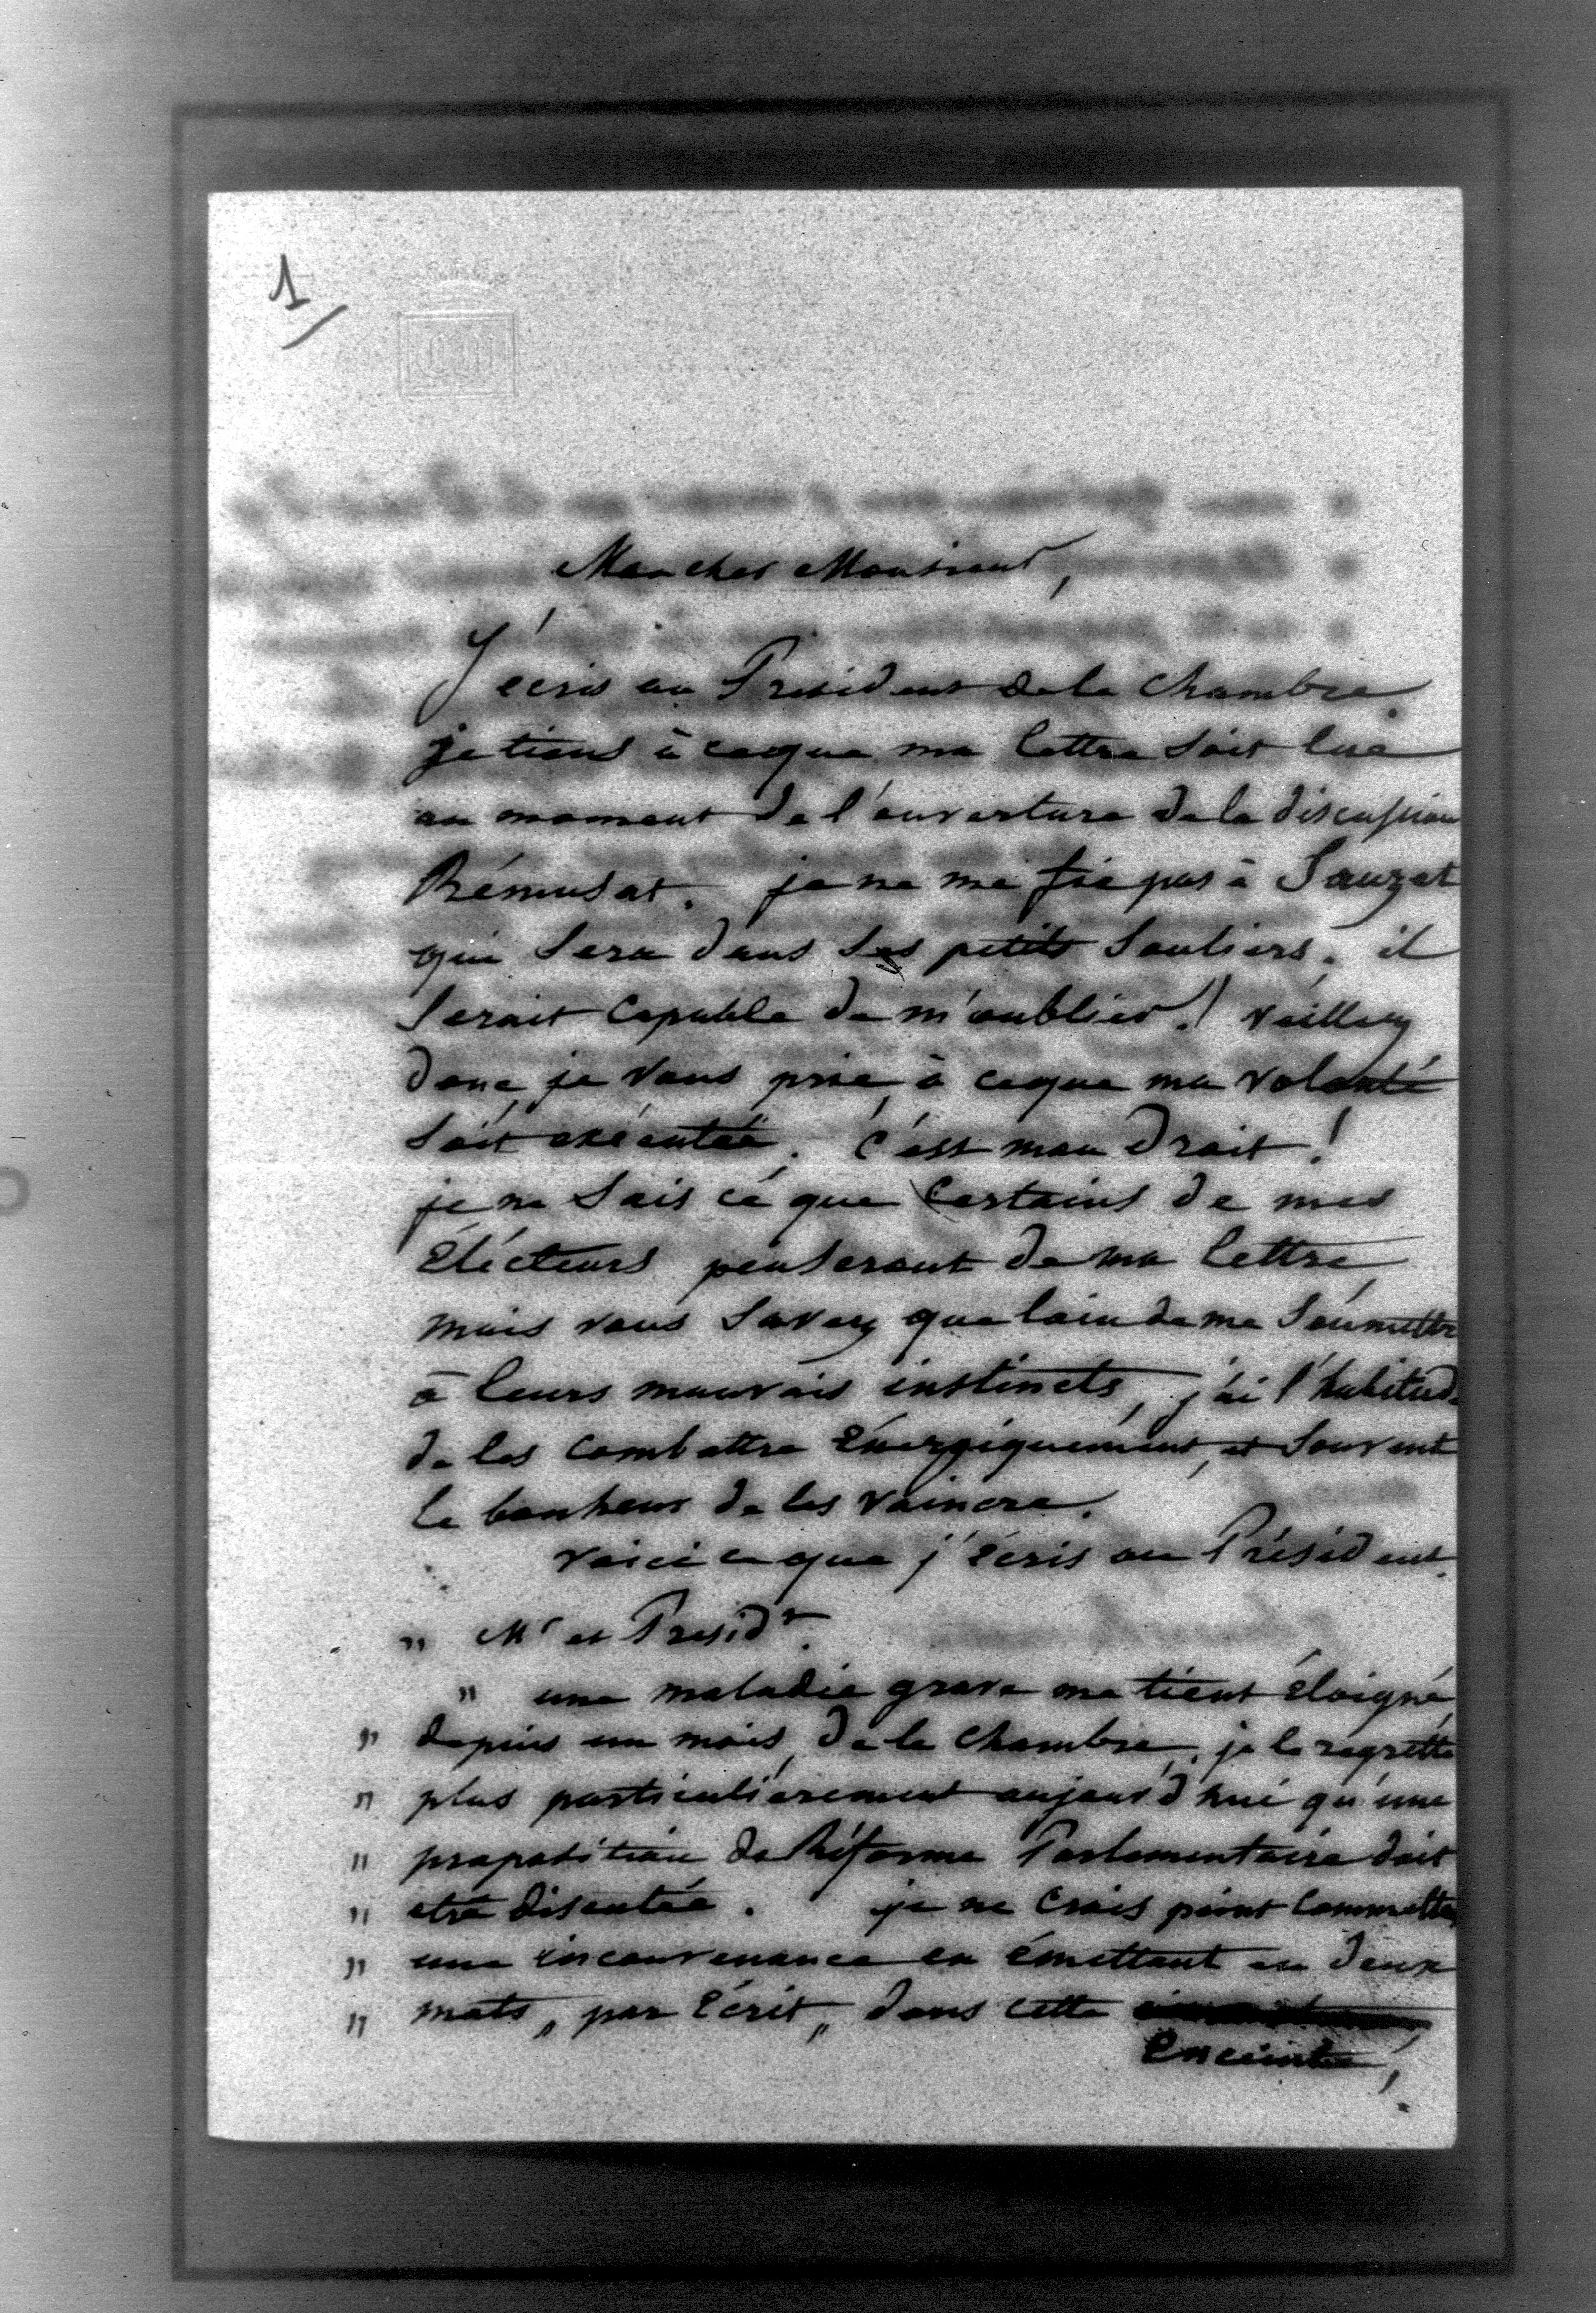 1
Mon cher Monsieur,
J'écris au Président de la Chambre.
je tiens à ce que ma lettre soit lue
au moment de l'ouverture de la discussion
Rémusat. je ne me fie pas à Sauzet
qui sera dans ses petits souliers. il
serait capable de m'oublier! veillez
donc, je vous prie, à ce que ma volonté
soit exécutée. c'est mon droit!
je ne sais ce que certains de mes
électeurs penseront de ma lettre,
mais vous savez que loin de me soumettre
à leurs mauvais instincts, j'ai l'habitude
de les combattre énergiquement, et souvent
le bonheur de les vaincre.
voici ce que j'écris au Président.
" Mr et Présidt.
" une maladie grave me tient éloigné,
" depuis un mois, de la Chambre. je le regrette
" plus particulièrement aujourd'hui qu'une
" proposition de Réforme Parlementaire doit
" etre discutée. je ne crois point commettre
" une inconvenance en émettant en deux
" mots, par écrit, dans cette
enceinte,